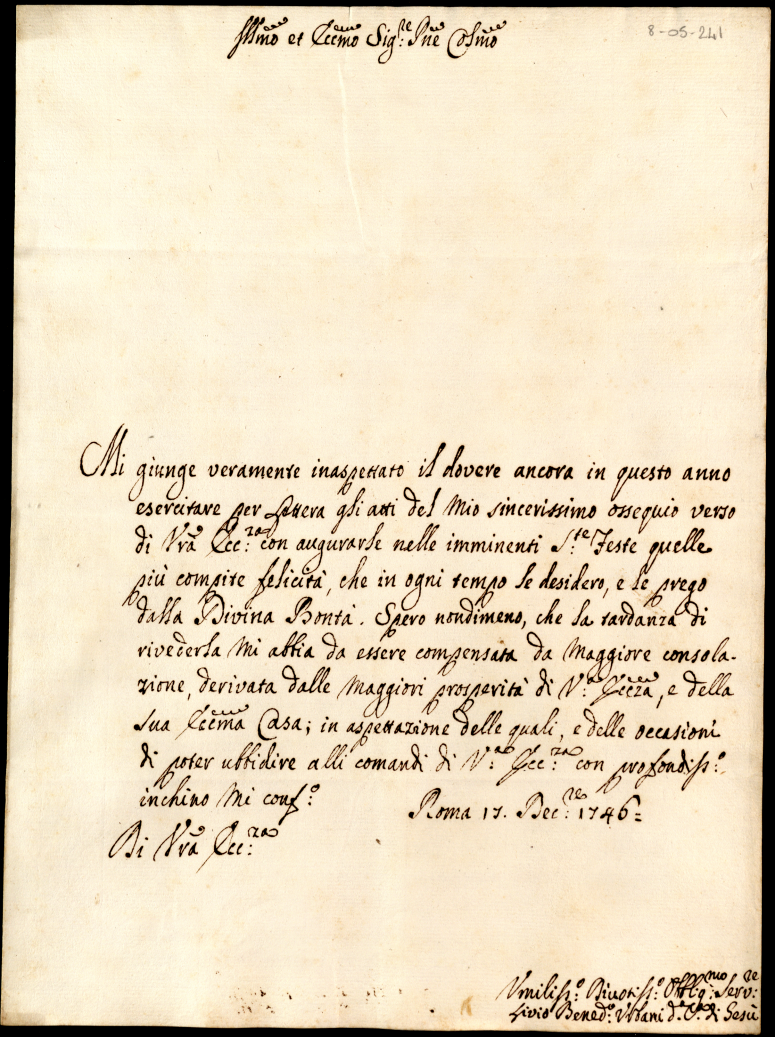 Illmo et Eccmo Sig:re Pne Colmo
8-05-241
Mi giunge veramente inaspettato il dovere ancora in questo anno
esercitare per lettera gli atti del mio sincerissimo ossequio verso
di Vra Ecc:za con augurarle nelle imminenti S:te Feste quelle
più compite felicità, che in ogni tempo le desidero, e le prego
dalla Divina Bontà. Spero nondimeno, che la tardanza di
rivederla mi abbia da essere compensata da maggiore consola-
zione, derivata dalle maggiori prosperità di V:a Eccza, e della
sua Eccma Casa; in aspettazione delle quali, e delle occasioni
di poter ubbidire alli comandi di V:a Ecc:za con profondiss:o
inchino mi conf:o
Roma 17. Dec:re 1746=
Di Vra Ecc:za
Umiliss:o Divotiss:o Obblig:mo Serv:re
Livio Bened:o Urbani d:a C:a di Gesù